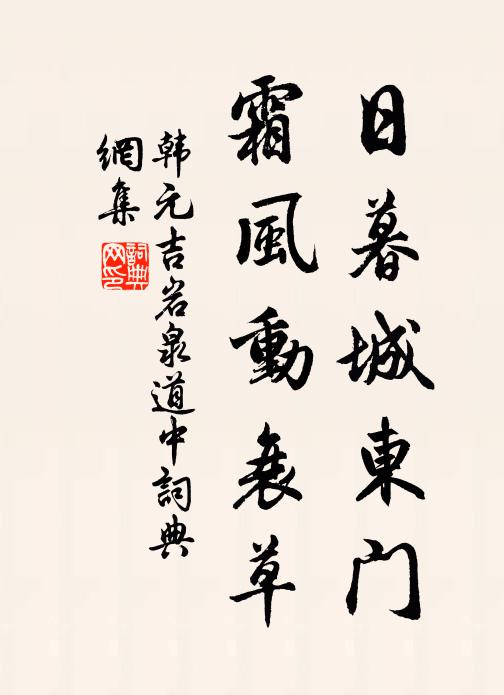 日暮城東门
霜風動衰草
韩元吉岩泉道中詞典
網集
詞典
网印